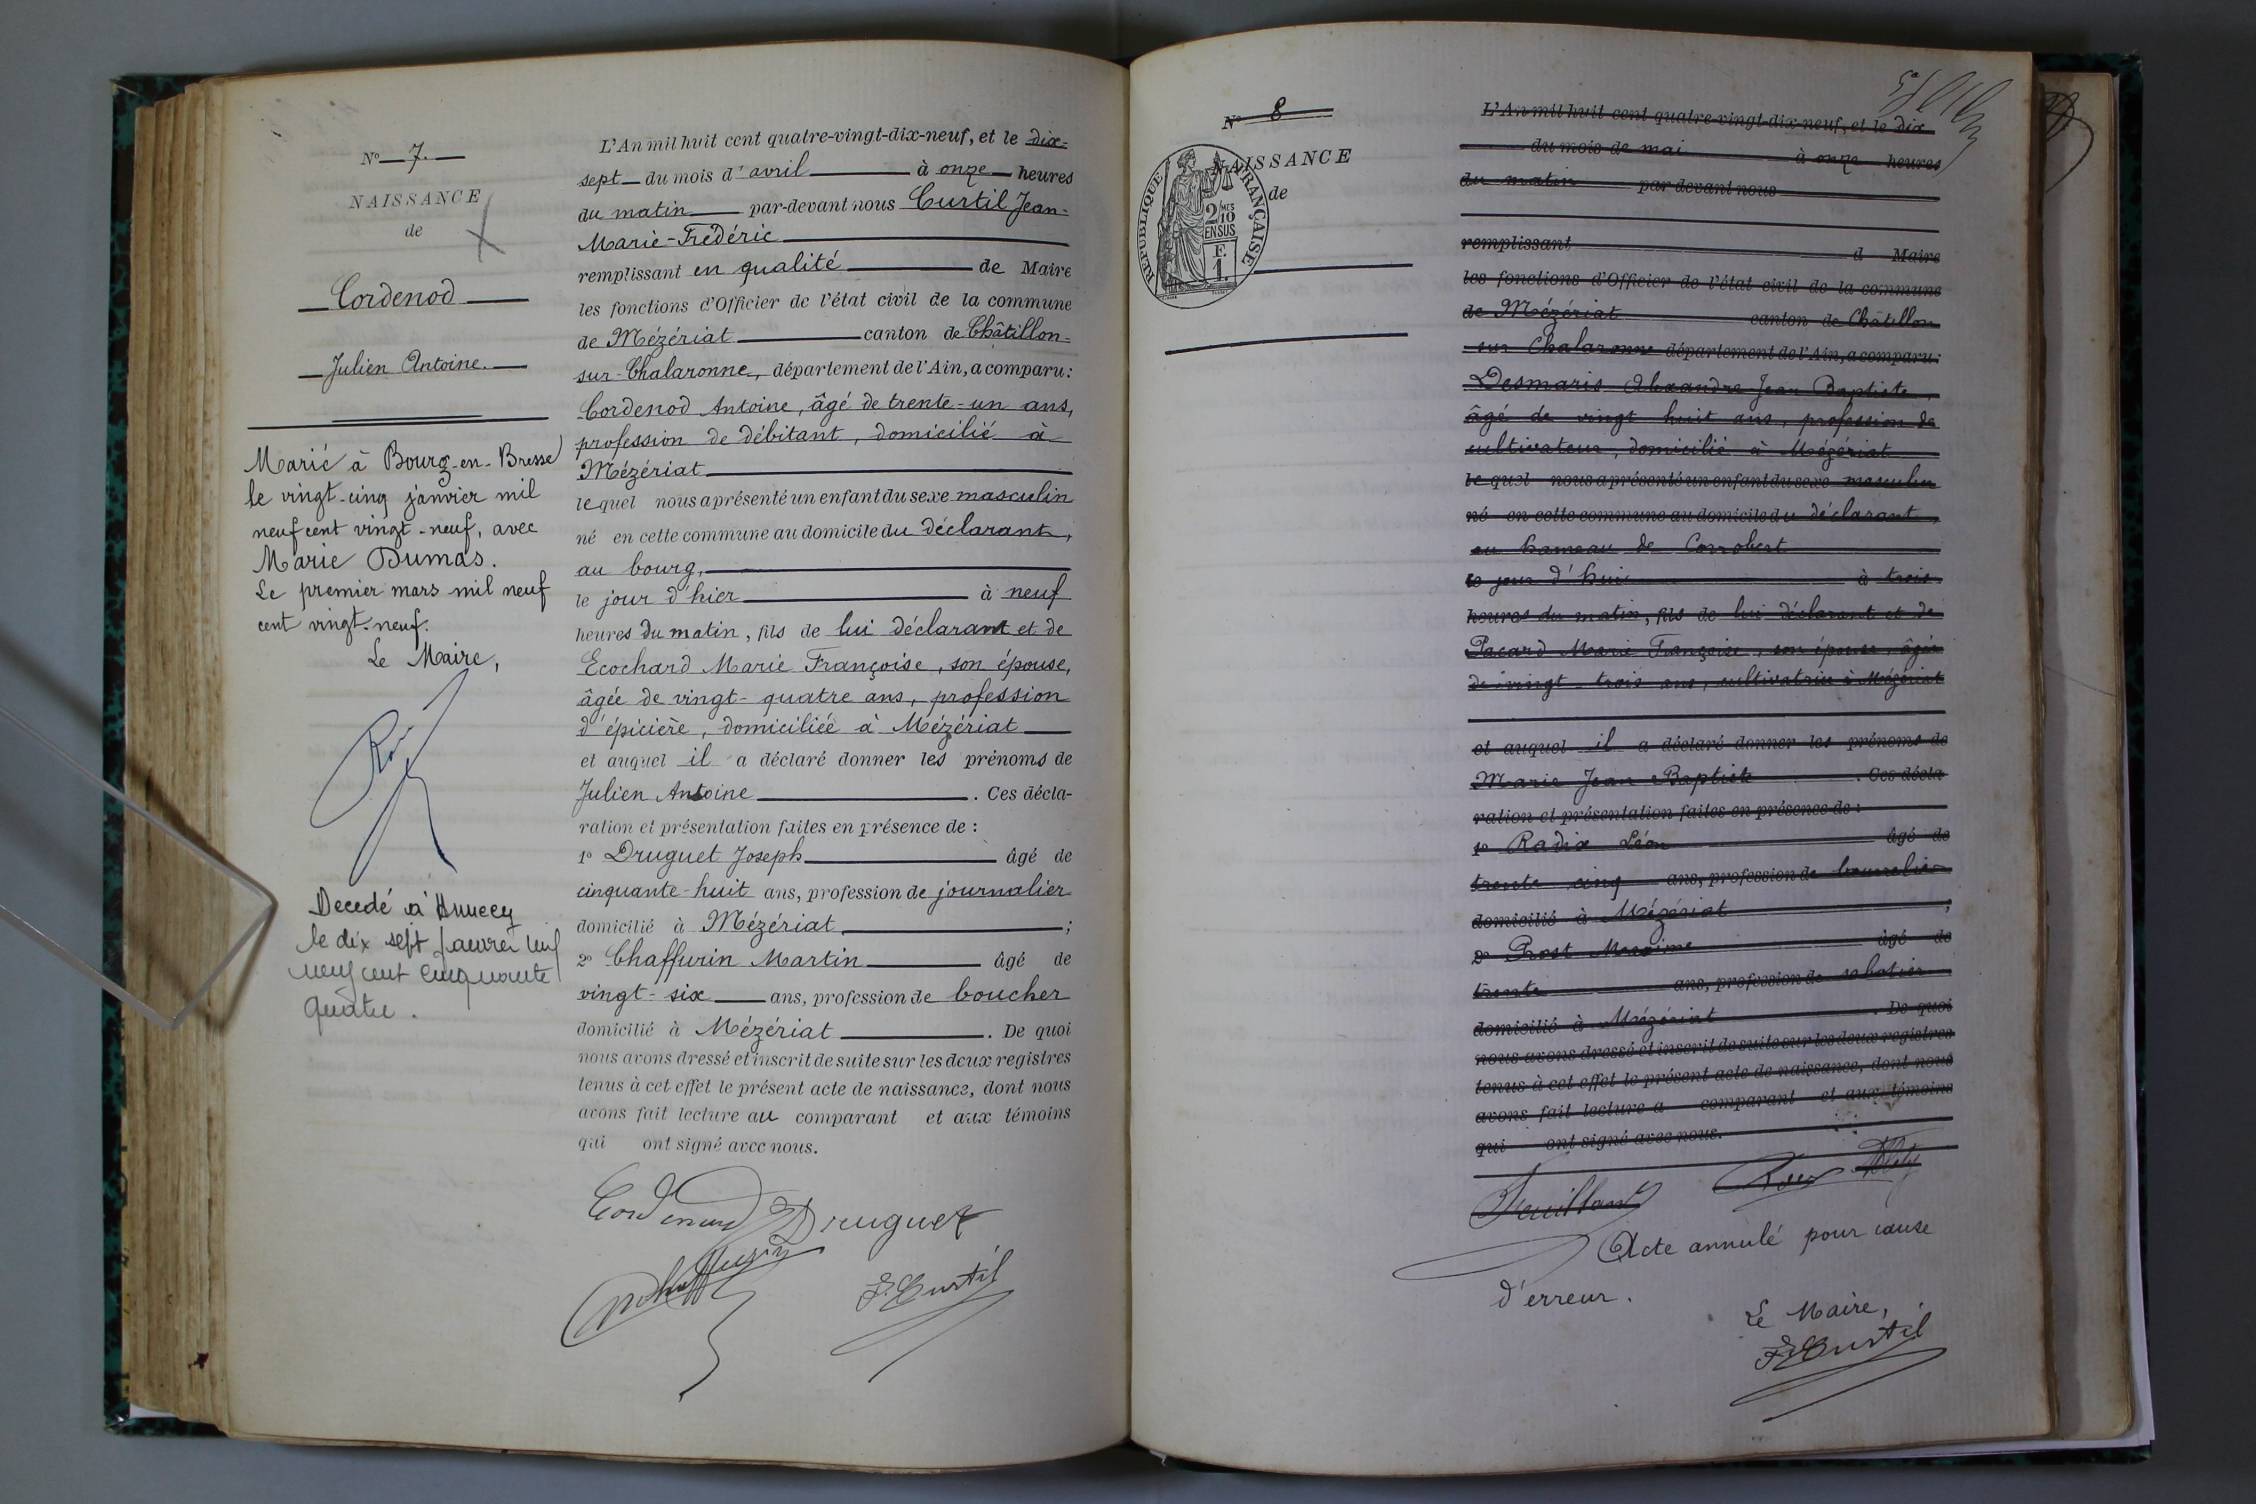 N° 7.
NAISSANCE
de
Cordenod
Julien Antoine.
Marié à Bourg-en-Bresse
le vingt-cinq janvier mil
neuf cent vingt-neuf, avec
Marie Dumas.
Le premier mars mil neuf
cent vingt-neuf.
Le Maire,
Décédé à Annecy
le dix sept janvier mil
neuf cent cinquante
quatre.
L'An mil huit cent quatre-vingt-dix-neuf, et le dix-
sept du mois d'avril à onze heures
du matin par-devant nous Curtil Jean-
Marie-Frédéric
remplissant en qualité de Maire
les fonctions d'Officier de l'état civil de la commune
de Mézériat canton de Châtillon-
sur-Chalaronne, département de l'Ain, a comparu:
Cordenod Antoine, âgé de trente-un ans,
profession de débitant, domicilié à
Mézériat
lequel nous a présenté un enfant du sexe masculin
né en cette commune au domicile du déclarant,
au bourg,
le jour d'hier à neuf
heures du matin, fils de lui déclarant et de
Ecochard Marie Françoise, son épouse,
âgée de vingt-quatre ans, profession
d'épicière, domiciliée à Mézériat
et auquel il a déclaré donner les prénoms de
Julien Antoine. Ces décla-
ration et présentation faites en présence de :
1° Druguet Joseph âgé de
cinquante-huit ans, profession de journalier
domicilié à Mézériat ;
2° Chaffurin Martin âgé de
vingt-six ans, profession de boucher
domicilié à Mézériat. De quoi
nous avons dressé et inscrit de suite sur les deux registres
tenus à cet effet le présent acte de naissance, dont nous
avons fait lecture au comparant et aux témoins
qui ont signé avec nous.
Cordenod Druguet
Chaffurin
F. Curtil
N° 8
NAISSANCE
de
RÉPUBLIQUE FRANÇAISE
2/10 MES
EN SUS
F.
1.
L'An mil huit cent quatre-vingt-dix-neuf, et le dix
du mois de mai à onze heures
du matin par-devant nous
remplissant d Maire
les fonctions d'Officier de l'état civil de la commune
de Mézériat canton de Châtillon
sur Chalaronne département de l'Ain, a comparu:
Desmaris Alexandre Jean Baptiste,
âgé de vingt huit ans, profession de
cultivateur, domicilié à Mézériat
lequel nous a présenté un enfant du sexe masculin
né en cette commune au domicile du déclarant,
au hameau de Corrobert
ce jour d'hui à trois
heures du matin, fils de lui déclarant et de
Pacard Marie Françoise, son épouse, âgée
de vingt-trois ans, cultivatrice à Mézériat
et auquel il a déclaré donner les prénoms de
Marie Jean Baptiste. Ces décla-
ration et présentation faites en présence de :
1° Radix Léon âgé de
trente cinq ans, profession de bourrelier
domicilié à Mézériat ;
2° Prost Maxime âgé de
trente ans, profession de sabotier
domicilié à Mézériat. De quoi
nous avons dressé et inscrit de suite sur les deux registres
tenus à cet effet le présent acte de naissance, dont nous
avons fait lecture a comparant et aux témoins
qui ont signé avec nous.
Acte annulé pour cause
d'erreur.
Le Maire,
F. Curtil